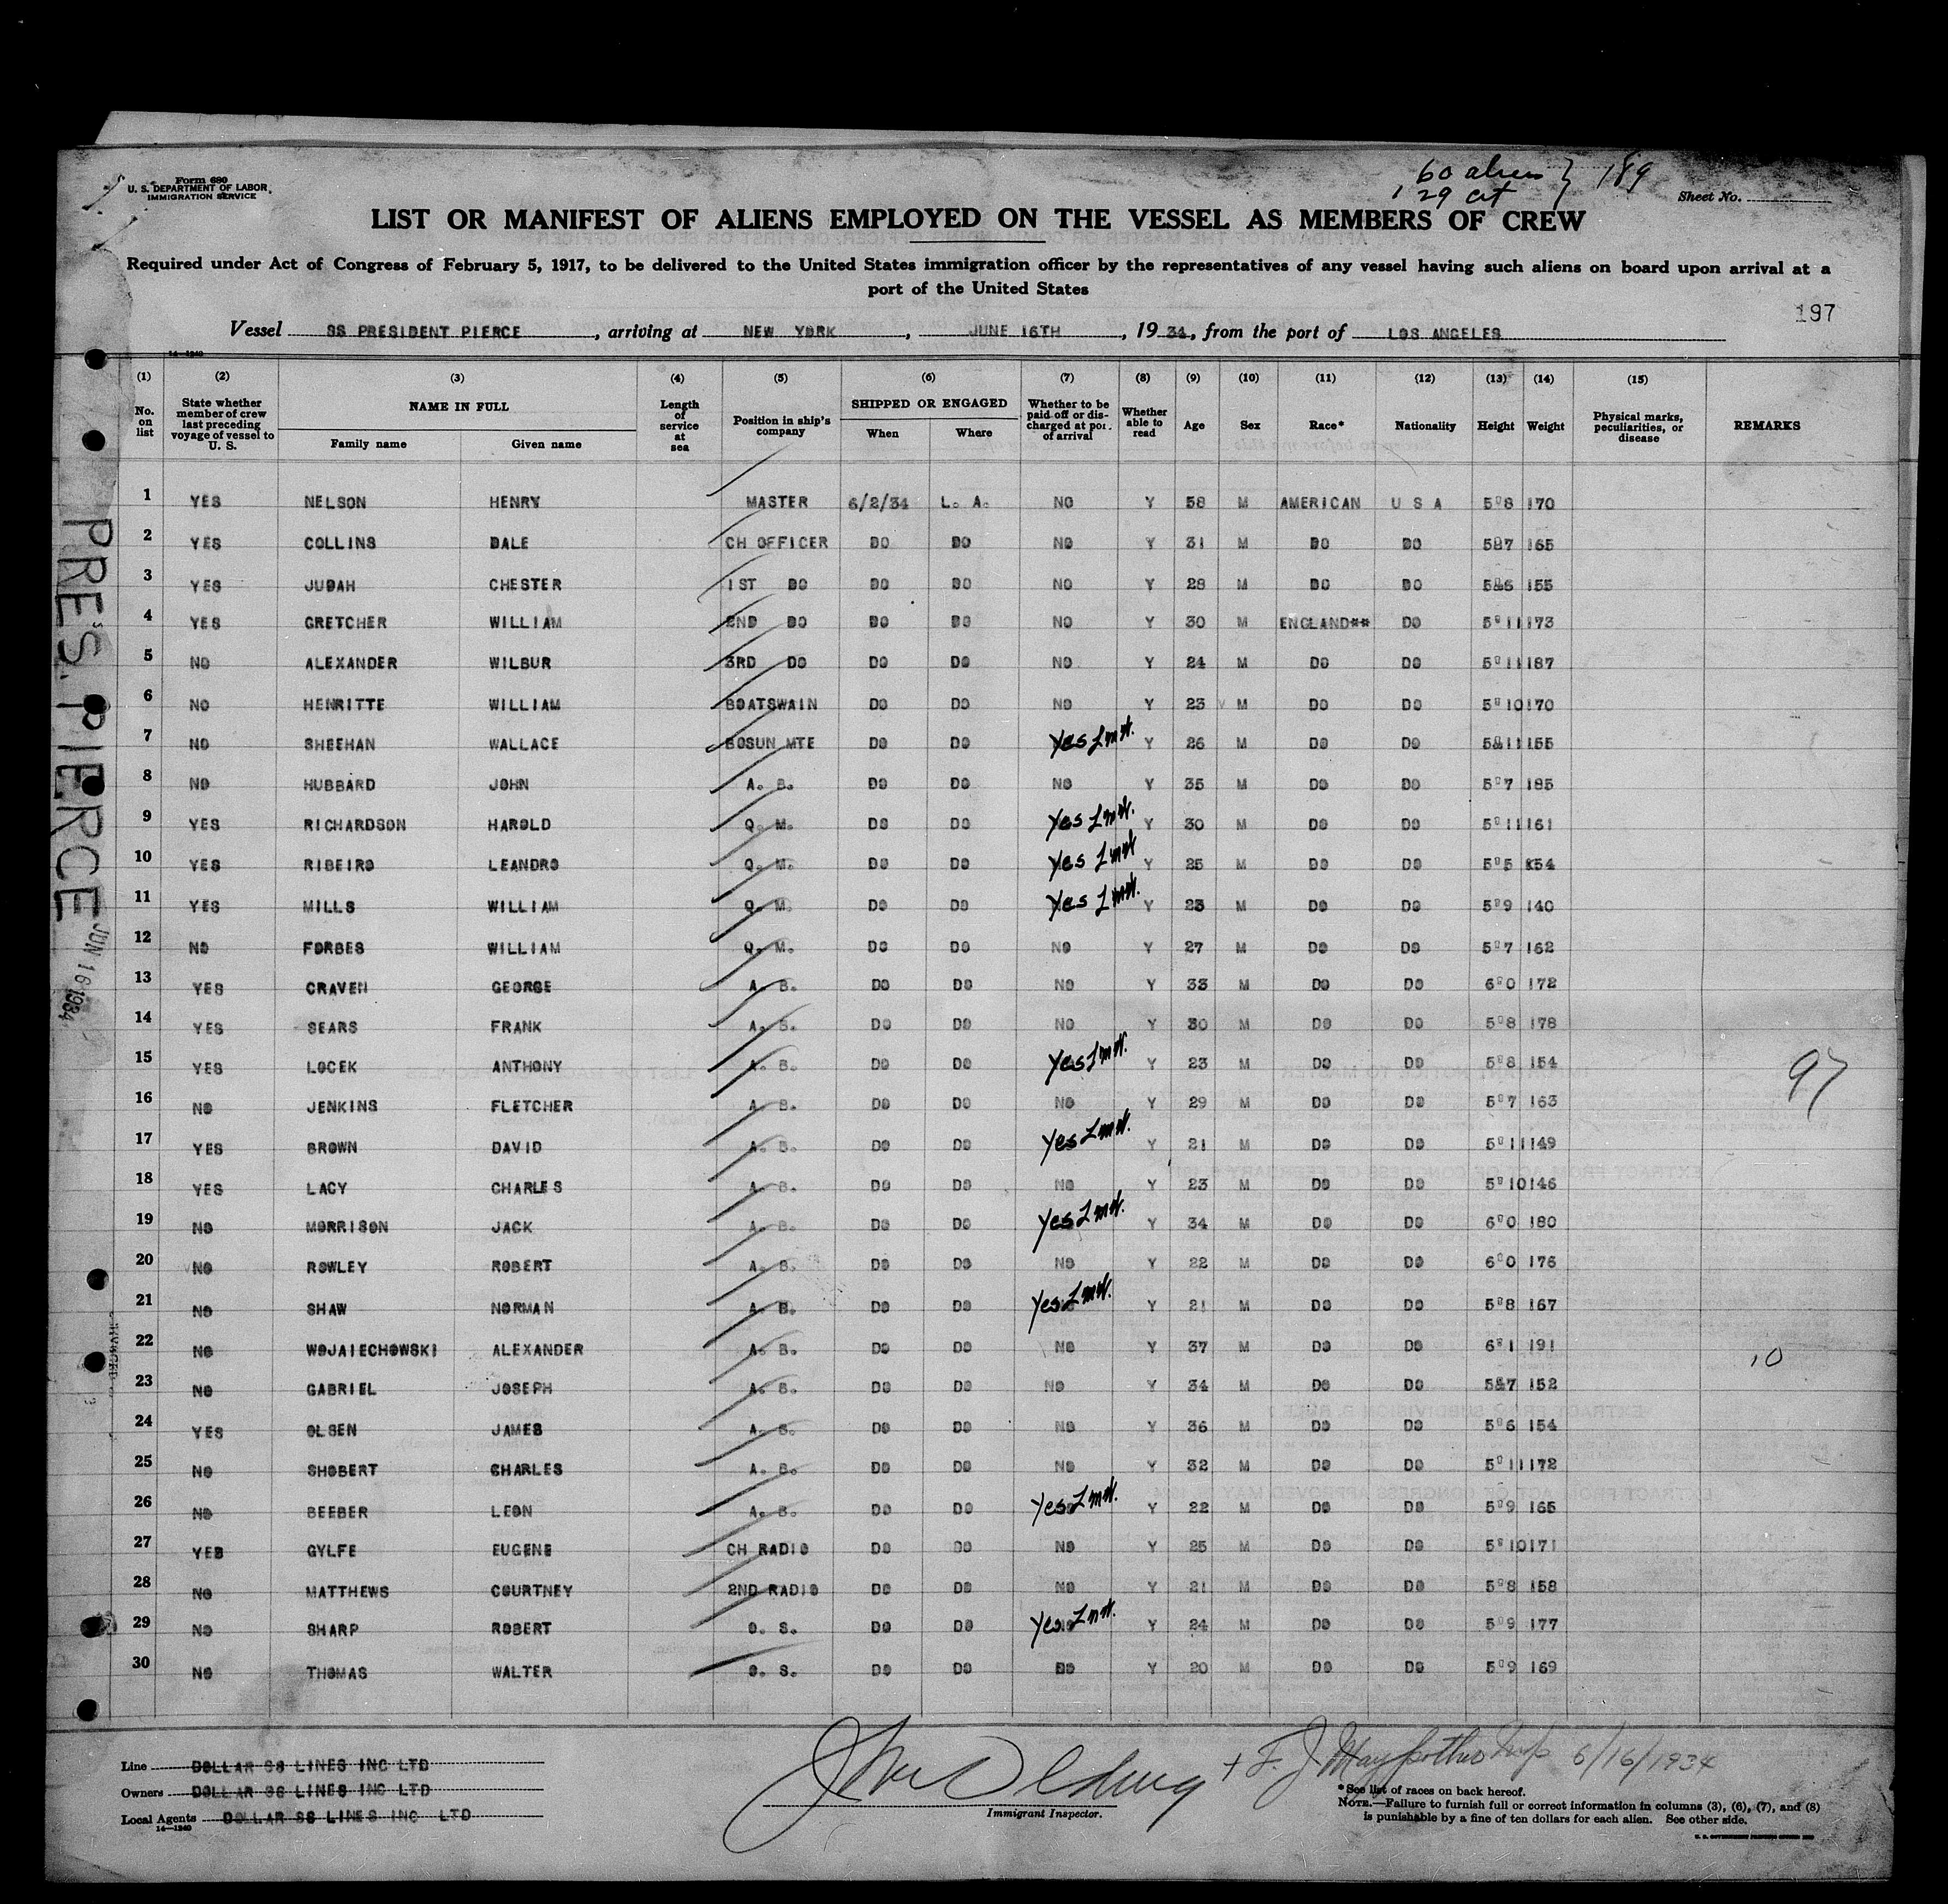 Form 680
U. S. DEPARTMENT OF LABOR
IMMIGRATION SERVICE
60 aliens } 189
129 cit
Sheet No.
LIST OR MANIFEST OF ALIENS EMPLOYED ON THE VESSEL AS MEMBERS OF CREW
Required under Act of Congress of February 5, 1917, to be delivered to the United States immigration officer by the representatives of any vessel having such aliens on board upon arrival at a
port of the United States
197
Vessel SS PRESIDENT PIERCE, arriving at NEW YORK, JUNE 16TH, 1934, from the port of LOS ANGELES
14—1240
(1) (2) (3) (4) (5) (6) (7) (8) (9) (10) (11) (12) (13) (14) (15)
No. on list
State whether member of crew last preceding voyage of vessel to U. S.
NAME IN FULL
Family name Given name
Length of service at sea
Position in ship's company
SHIPPED OR ENGAGED
When Where
Whether to be paid off or discharged at port of arrival
Whether able to read
Age Sex Race* Nationality Height Weight
Physical marks, peculiarities, or disease
REMARKS
1 YES NELSON HENRY MASTER 6/2/34 L. A. NO Y 58 M AMERICAN U S A 5°8 170
2 YES COLLINS DALE CH OFFICER DO DO NO Y 31 M DO DO 5&7 165
3 YES JUDAH CHESTER 1ST DO DO DO NO Y 28 M DO DO 5&6 155
4 YES GRETCHER WILLIAM 2ND DO DO DO NO Y 30 M ENGLAND** DO 5°11 173
5 NO ALEXANDER WILBUR 3RD DO DO DO NO Y 24 M DO DO 5°11 187
6 NO HENRITTE WILLIAM BOATSWAIN DO DO NO Y 23 M DO DO 5°10 170
7 NO SHEEHAN WALLACE BOSUN MTE DO DO Yes Y 26 M DO DO 5&11 155
8 NO HUBBARD JOHN A. B. DO DO NO Y 35 M DO DO 5°7 185
9 YES RICHARDSON HAROLD Q. M. DO DO Yes Y 30 M DO DO 5°11 161
10 YES RIBEIRO LEANDRO Q. M. DO DO Yes Y 25 M DO DO 5°5 154
11 YES MILLS WILLIAM Q. M. DO DO Yes Y 23 M DO DO 5°9 140
12 NO FORBES WILLIAM Q. M. DO DO NO Y 27 M DO DO 5°7 162
13 YES CRAVEN GEORGE A. B. DO DO NO Y 33 M DO DO 6°0 172
14 YES SEARS FRANK A. B. DO DO NO Y 30 M DO DO 5°8 178
15 YES LOCEK ANTHONY A. B. DO DO Yes Y 23 M DO DO 5°8 154
97
16 NO JENKINS FLETCHER A. B. DO DO NO Y 29 M DO DO 5°7 163
17 YES BROWN DAVID A. B. DO DO Yes Y 21 M DO DO 5°11 149
18 YES LACY CHARLES A. B. DO DO NO Y 23 M DO DO 5°10 146
19 NO MORRISON JACK A. B. DO DO Yes Y 34 M DO DO 6°0 180
20 NO ROWLEY ROBERT A. B. DO DO NO Y 22 M DO DO 6°0 176
21 NO SHAW NORMAN A. B. DO DO Yes Y 21 M DO DO 5°8 167
22 NO WOJAIECHOWSKI ALEXANDER A. B. DO DO NO Y 37 M DO DO 6°1 191
10
23 NO GABRIEL JOSEPH A. B. DO DO NO Y 34 M DO DO 5&7 152
24 YES OLSEN JAMES A. B. DO DO NO Y 36 M DO DO 5°6 154
25 NO SHOBERT CHARLES A. B. DO DO NO Y 32 M DO DO 5°11 172
26 NO BEEBER LEON A. B. DO DO Yes Y 22 M DO DO 5°9 165
27 YES GYLFE EUGENE CH RADIO DO DO NO Y 25 M DO DO 5°10 171
28 NO MATTHEWS COURTNEY 2ND RADIO DO DO NO Y 21 M DO DO 5°8 158
29 NO SHARP ROBERT O. S. DO DO Yes Y 24 M DO DO 5°9 177
30 NO THOMAS WALTER O. S. DO DO DO Y 20 M DO DO 5°9 169
PRES. PIERCE
JUN 16 1934
Line DOLLAR SS LINES INC LTD
Owners DOLLAR SS LINES INC LTD
Local Agents DOLLAR SS LINES INC LTD
14—1240
Immigrant Inspector.
6/16/1934
*See list of races on back hereof.
NOTE.—Failure to furnish full or correct information in columns (3), (6), (7), and (8)
is punishable by a fine of ten dollars for each alien. See other side.